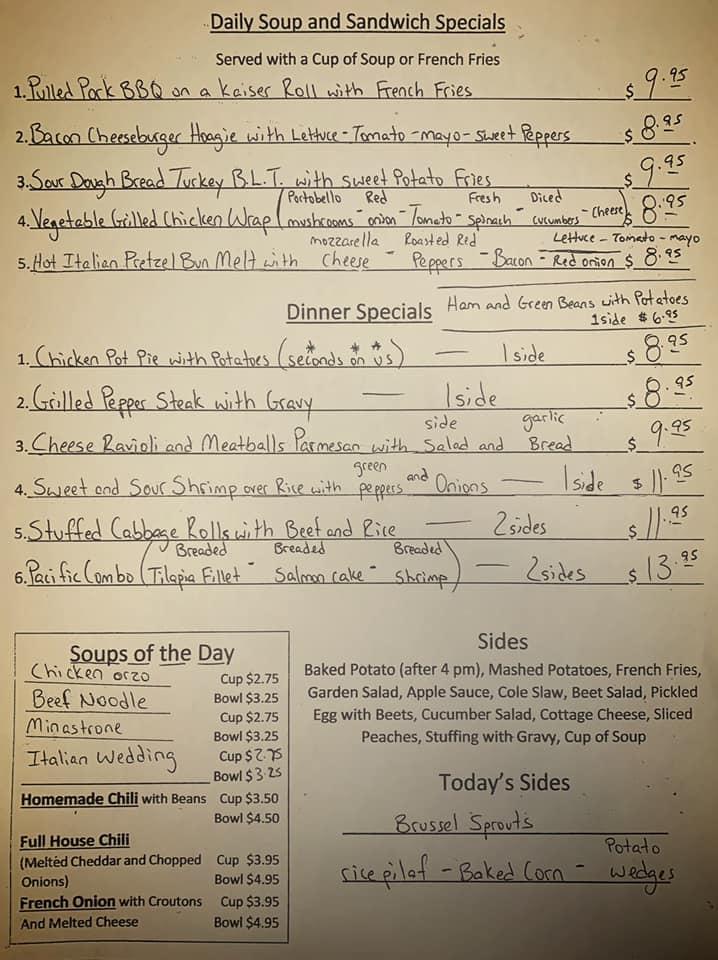 Daily Soup and Sandwich Specials
Served with a Cup of Soup or French Fries
1. Pulled Pork BBQ on a Kaiser Roll with French Fries $ 9.95
2. Bacon Cheeseburger Hoagie with Lettuce - Tomato - mayo - sweet Peppers $ 8.95
3. Sour Dough Bread Turkey B.L.T. with sweet Potato Fries $ 9.95
4. Vegetable Grilled Chicken Wrap (Portobello mushrooms - Red onion - Tomato - Fresh Spinach - Diced cucumbers - cheese) $ 8.95
5. Hot Italian Pretzel Bun Melt with mozzarella Cheese - Roasted Red Peppers - Bacon - Lettuce - Tomato - mayo Red onion $ 8.95
Dinner Specials
Ham and Green Beans with Potatoes
1side $6.95
1. Chicken Pot Pie with Potatoes (seconds on us) * * * — 1 side $ 8.95
2. Grilled Pepper Steak with Gravy — 1side $ 8.95
3. Cheese Ravioli and Meatballs Parmesan with side Salad and garlic Bread $ 9.95
4. Sweet and Sour Shrimp over Rice with green peppers and Onions — 1 side $ 11.95
5. Stuffed Cabbage Rolls with Beef and Rice — 2sides $ 11.95
6. Pacific Combo (Breaded Tilapia Fillet - Breaded Salmon cake - Breaded Shrimp) — 2sides $ 13.95
Soups of the Day
Chicken orzo Cup $2.75
Beef Noodle Bowl $3.25
Cup $2.75
Minastrone Bowl $3.25
Italian Wedding Cup $2.75
Bowl $3.25
Homemade Chili with Beans Cup $3.50
Bowl $4.50
Full House Chili
(Melted Cheddar and Chopped Cup $3.95
Onions) Bowl $4.95
French Onion with Croutons Cup $3.95
And Melted Cheese Bowl $4.95
Sides
Baked Potato (after 4 pm), Mashed Potatoes, French Fries,
Garden Salad, Apple Sauce, Cole Slaw, Beet Salad, Pickled
Egg with Beets, Cucumber Salad, Cottage Cheese, Sliced
Peaches, Stuffing with Gravy, Cup of Soup
Today's Sides
Brussel Sprouts
rice pilaf - Baked Corn - Potato wedges